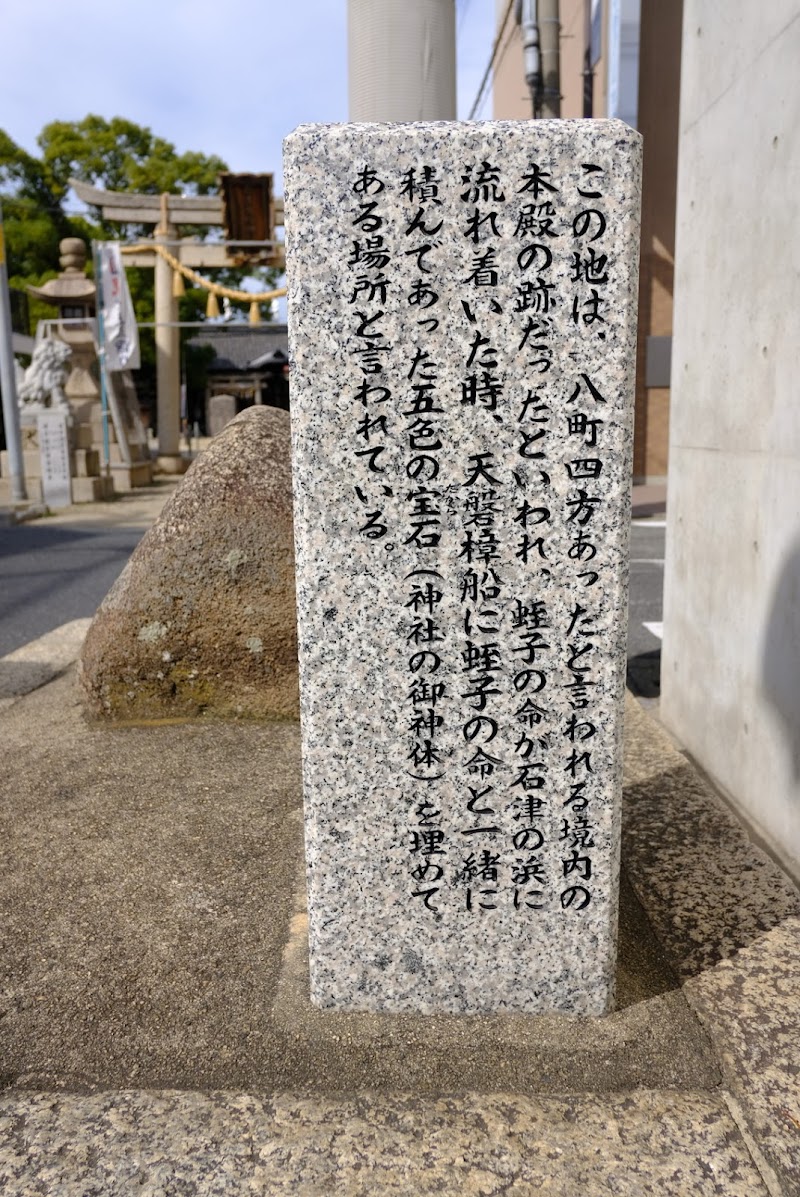 この地は、八町四方あったと言われる境内の
本殿の跡だったといわれ、蛭子の命が石津の浜に
流れ着いた時、天磐樟船に蛭子の命と一緒に
積んであった五色の宝石（神社の御神体）を埋めて
ある場所と言われている。